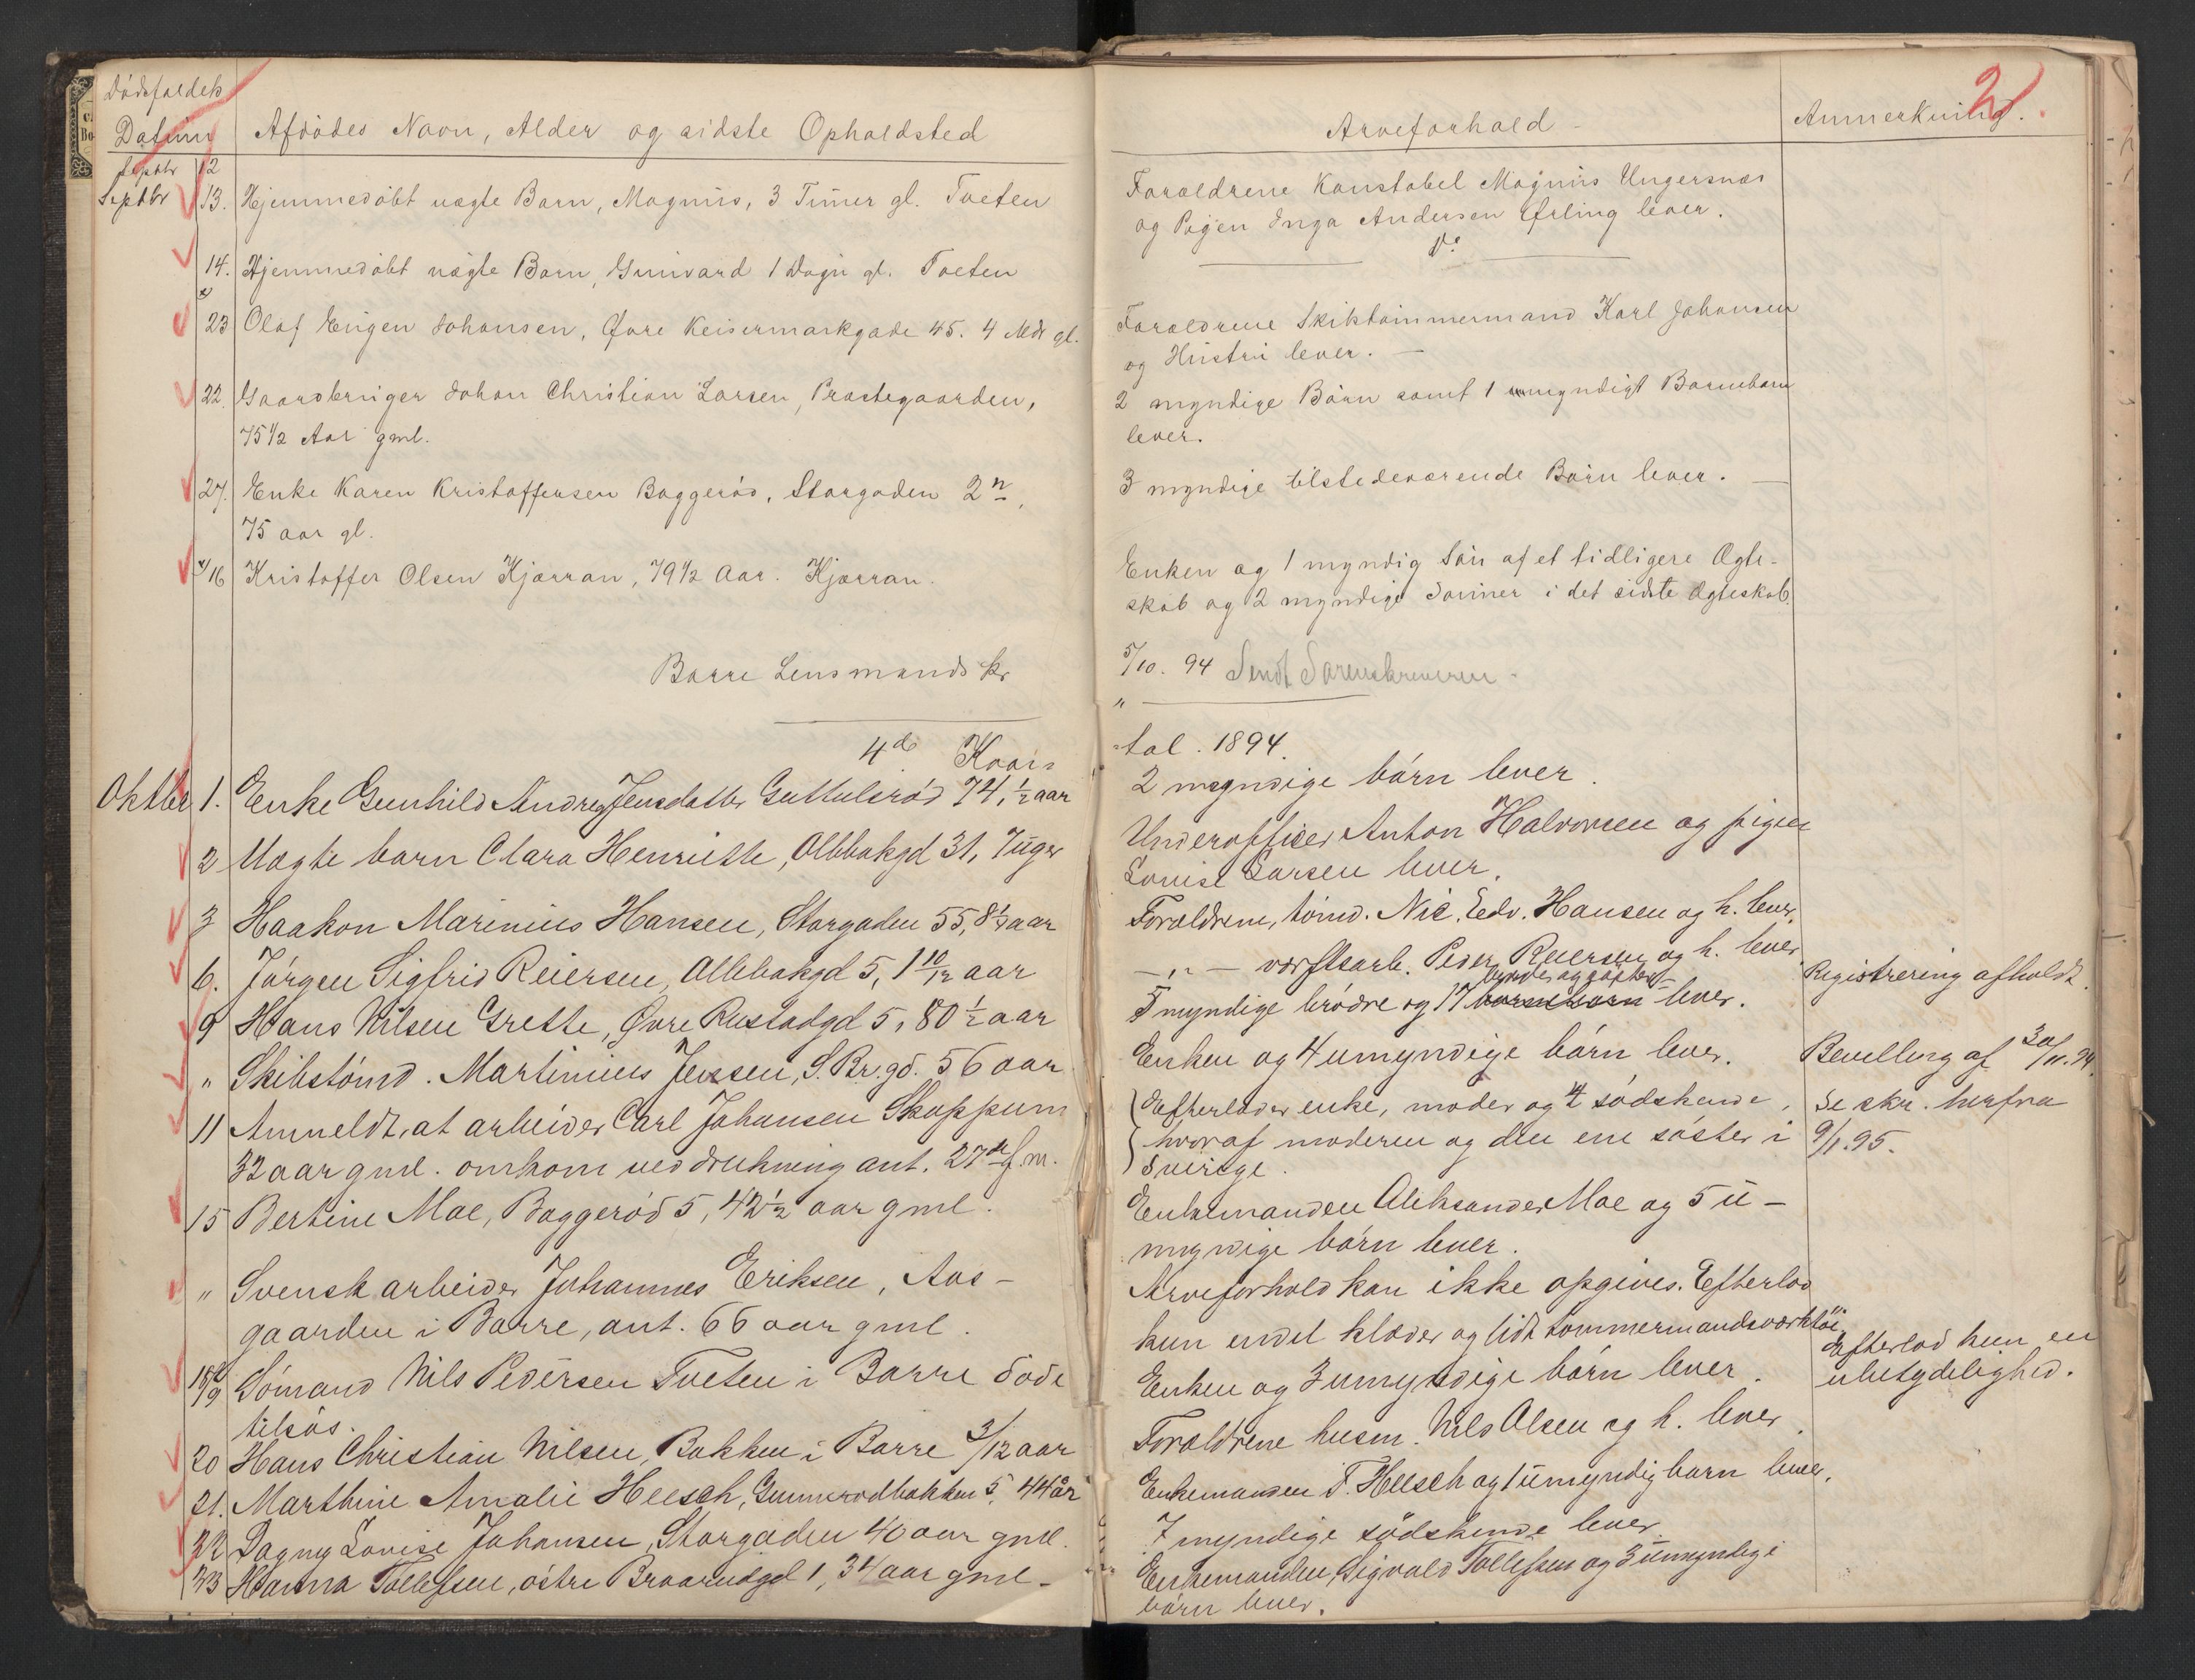 Dødsfaldets
Datum
Afdødes Navn, Alder og sidste Opholdsted
Septbr 12
Septbr 13. Hjemmedøbt uægte Barn, Magnus, 3 Timer gl. Tveten
14. Hjemmedøbt uægte Barn, Gunvard 1 Døgn gl. Toeten
23 Olaf Eugen Johansen, Øvre Keisermarkgade 45. 4 Mdr gl.
22. Gaardbruger Johan Christian Larsen, Præstegaarden,
75 1/2 Aar gml.
27. Enke Karen Kristoffersen Baggerød, Storgaden 2n,
75 aar gl.
16 Kristoffer Olsen Kjærran, 79 1/2 Aar. Kjærran.
Borre Lensmands kr
4de Kvar=
Oktbr 1. Enke Gunhild Andrea Jensdatter Guttulsrød 74,1/2 aar
2 Uægte barn Clara Henriette, Ollebakgd 31, 7 uger
3 Haakon Marinius Hansen, Storgaden 55, 8 1/2 aar
6. Jørgen Sigfrid Reiersen, Ollebakgd 5, 1 10/12 aar
9 Hans Nilsen Grette, Øvre Rustadgd 5, 80 1/2 aar
" Skibstømd. Martinius Jensen, S. Br. gd. 56 aar
11 Anmeldt, at arbeider Carl Johansen Skoppum
32 aar gml. omkom ved drukning ant. 27de f. m.
15 Bertine Moe, Baggerød 5, 42 1/2 aar gml.
" Svensk arbeider Johannes Eriksen, Aas-
gaarden i Borre, ant. 66 aar gml.
18/9 Sømand Nils Pedersen Tveten i Borre døde
tilsøs.
20 Hans Christian Nilsen, Bakken i Borre 3/12 aar
21. Marthine Amalie Heesch, Gunnerødbakken 5, 44 år
22 Dagny Lovise Johansen, Storgaden 40 aar gml.
23 Hanna Tollefsen, østre Braarudgd 1, 34 aar gml.
2.
Arveforhold
Anmerkning.
Forældrene Konstabel Magnus Ungersnæs
og Pigen Inga Andersen Efling lever.
Do
Forældrene Skibtømmermand Karl Johansen
og Hustru lever.
2 myndige Børn samt 1 umyndigt Barnebarn
lever.
3 myndige tilstedeværende Børn lever.
Enken og 1 myndig Søn af et tidligere Ægte-
skab og 2 myndige Sønner i det sidste Ægteskab.
5/10. 94 Sendt Sorenskriveren.
"
tal. 1894.
2 myndige børn lever.
Underofficer Anton Halvorsen og pigen
Lovise Larsen lever.
Forældrene, tømd. Nic. Edv. Hansen og h. lever.
— " — værftsarb. Peder Reiersen og h. lever
7 myndige brødre og 17 lever.
Registrering afholdt.
Enken og 4 umyndige børn lever.
Bevilling af 30/11. 94.
Efterlader enke, moder og 4 sødskende,
hvoraf moderen og den ene søster i
Sverige.
Se skr. herfra
9/1. 95.
Enkemanden Aleksander Moe og 5 u-
myndige børn lever.
Arveforhold kan ikke opgives. Efterlod
kun endel klæder og lidt tømmermandsværktøi.
Enken og 3 umyndige børn lever.
Efterlod kun en
ubetydelighed.
Forældrene husm. Nils Olsen og h. lever.
Enkemanden F. Heesch og 1 umyndig barn lever.
7 myndige sødskende lever.
Enkemanden, Sigvald Tollefsen og 3 umyndige
børn lever.